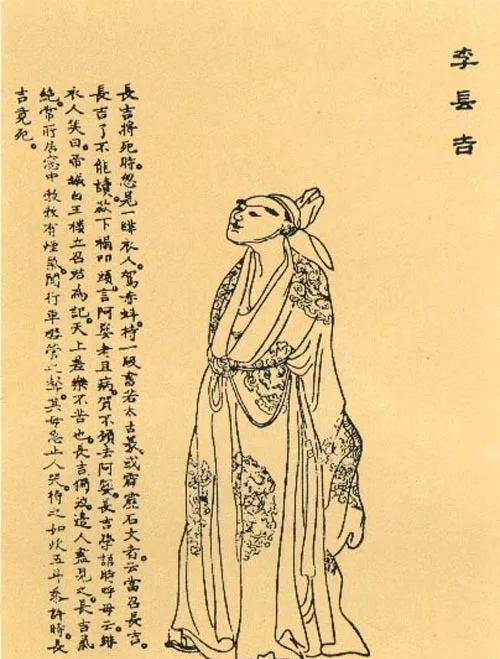 李長吉
長吉將死時。忽見一緋衣人。駕赤虯。持一版書若太古篆。或霹靂石文者。云當召長吉。
長吉了不能讀。欻下榻叩頭。言阿㜷老且病。賀不願去。阿㜷。長吉學語時呼母云。緋
衣人笑曰。帝城白玉樓。立召君為記。天上差樂不苦也。長吉獨泣。邊人盡見之。長吉氣
絕。常所居窗中。勃勃有煙氣。聞行車嘒管之聲。其母急止人哭。待之如炊五斗黍許時。長
吉竟死。